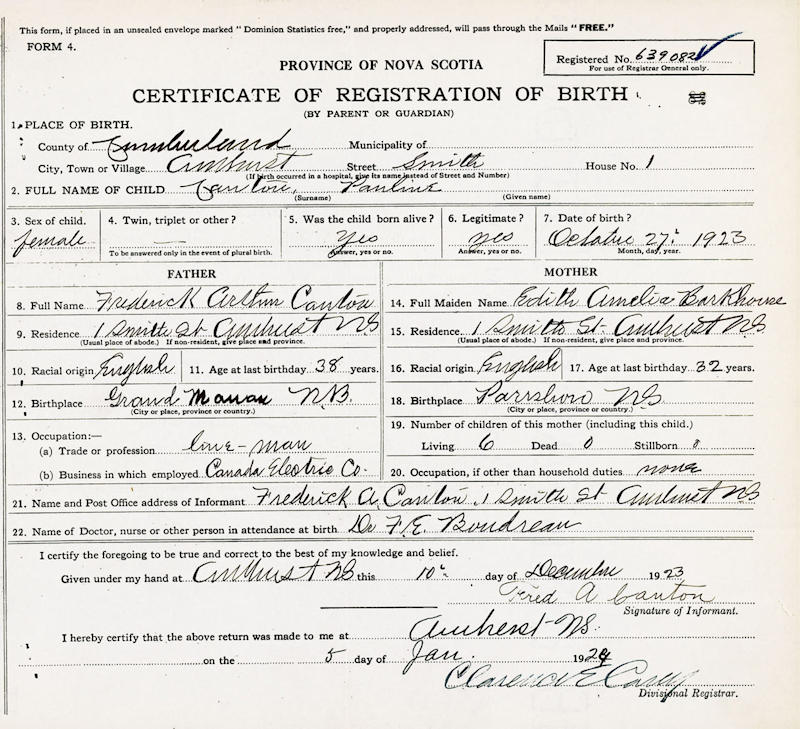 This form, if placed in an unsealed envelope marked "Dominion Statistics free," and properly addressed, will pass through the Mails "FREE."
FORM 4.
Registered No. 639082
For use of Registrar General only.
PROVINCE OF NOVA SCOTIA
CERTIFICATE OF REGISTRATION OF BIRTH
(BY PARENT OR GUARDIAN)
1. PLACE OF BIRTH.
County of Cumberland Municipality of
City, Town or Village Amherst Street Smith House No. 1
(If birth occurred in a hospital, give its name instead of Street and Number)
2. FULL NAME OF CHILD Canton, Pauline
(Surname) (Given name)
3. Sex of child. 4. Twin, triplet or other? 5. Was the child born alive? 6. Legitimate? 7. Date of birth?
female — Yes yes October 27. 1923
To be answered only in the event of plural birth. Answer, yes or no. Answer, yes or no. Month, day, year.
FATHER
8. Full Name Frederick Arthur Canton
9. Residence 1 Smith St Amherst NS
(Usual place of abode.) If non-resident, give place and province.
10. Racial origin English 11. Age at last birthday 38 years.
12. Birthplace Grand Manan N.B.
(City or place, province or country.)
13. Occupation:—
(a) Trade or profession line-man
(b) Business in which employed Canada Electric Co.
MOTHER
14. Full Maiden Name Edith Amelia Barkhouse
15. Residence 1 Smith St. Amherst NS
(Usual place of abode.) If non-resident, give place and province.
16. Racial origin English 17. Age at last birthday 32 years.
18. Birthplace Parrsboro NS
(City or place, province or country.)
19. Number of children of this mother (including this child.)
Living 6 Dead 0 Stillborn
20. Occupation, if other than household duties none
21. Name and Post Office address of Informant Frederick A. Canton 1 Smith St Amherst NS
22. Name of Doctor, nurse or other person in attendance at birth Dr F. E. Boudreau
I certify the foregoing to be true and correct to the best of my knowledge and belief.
Given under my hand at Amherst NS this 10 day of December 1923
Fred A Canton
Signature of Informant.
I hereby certify that the above return was made to me at Amherst NS.
on the 5 day of Jan. 1924
Clarence E
Divisional Registrar.